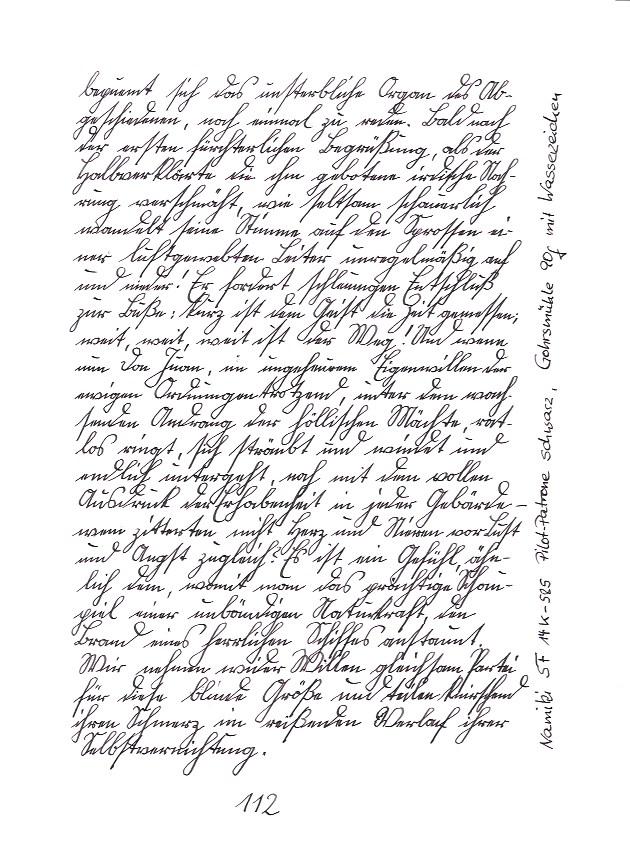 bequemt sich das unsterbliche Organ des Ab-
geschiedenen, noch einmal zu reden. Bald nach
der ersten fürchterlichen Begrüßung, als der
Halbverklärte die ihm gebotene irdische Nah-
rung verschmäht, wie seltsam schauerlich
wandelt seine Stimme auf den Sprossen ei-
ner luftgewebten Leiter unregelmäßig auf
und nieder! Er fordert schleunigen Entschluß
zur Buße: kurz ist dem Geist die Zeit gemessen;
weit, weit, weit ist der Weg! Und wenn
nun Don Juan, im ungeheuren Eigenwillen den
ewigen Ordnungen trotzend, unter dem wach-
senden Andrang der höllischen Mächte, rat-
los ringt, sich sträubt und windet und
endlich untergeht, noch mit dem vollen
Ausdruck der Erhabenheit in jeder Gebärde –
wem zitterten nicht Herz und Nieren vor Lust
und Angst zugleich? Es ist ein Gefühl, ähn-
lich dem, womit man das prächtige Schau-
spiel einer unbändigen Naturkraft, den
Brand eines herrlichen Schiffes anstaunt.
Wir nehmen wider Willen gleichsam Partei
für diese blinde Größe und teilen knirschend
ihren Schmerz im reißenden Verlauf ihrer
Selbstvernichtung.
112
Namiki SF 14K-585 Pilot-Patrone schwarz, Gohrsmühle 90g mit Wasserzeichen